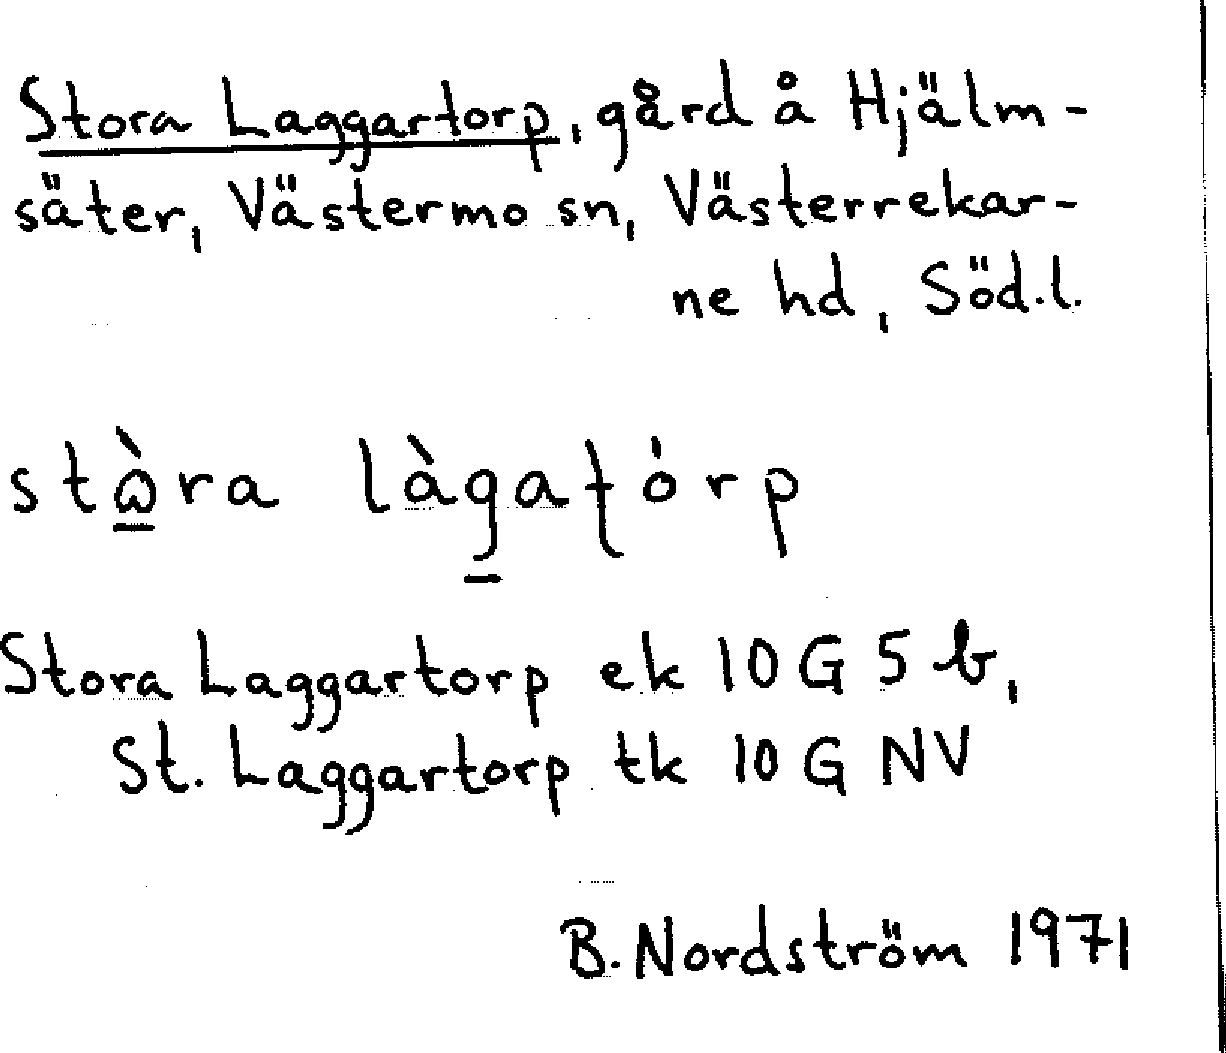 Stora Laggartorp, gård å Hjälm-
säter, Västermo sn, Västerrekar-
ne hd, Söd.l.
stɷ̠̀ra làg̠aƫórp
Stora Laggartorp ek 10 G 5 b,
St. Laggartorp tk 10 G NV
B. Nordström 1971